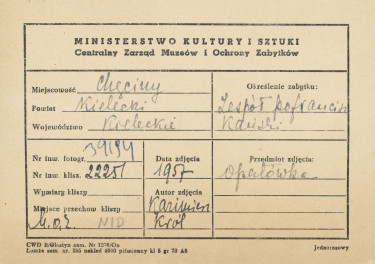 MINISTERSTWO KULTURY I SZTUKI
Centralny Zarząd Muzeów i Ochrony Zabytków
Miejscowość Chęciny
Powiat Kielecki
Województwo Kieleckie
Określenie zabytku:
Zespół pofrancisz
kański
39194
Nr inw. fotogr.
Nr inw. klisz. 22251
Wymiary kliszy
Miejsce przechow kliszy
M.O.Z. NID
Data zdjęcia
1957
Autor zdjęcia
Kazimierz
Król
Przedmiot zdjęcia:
Opatówka
CWD zam. Nr 1270/Oa
Łomże zam. nr. 285 nakład 5000 piśmienny kl 5 gr 70 A6
Jednorazowy